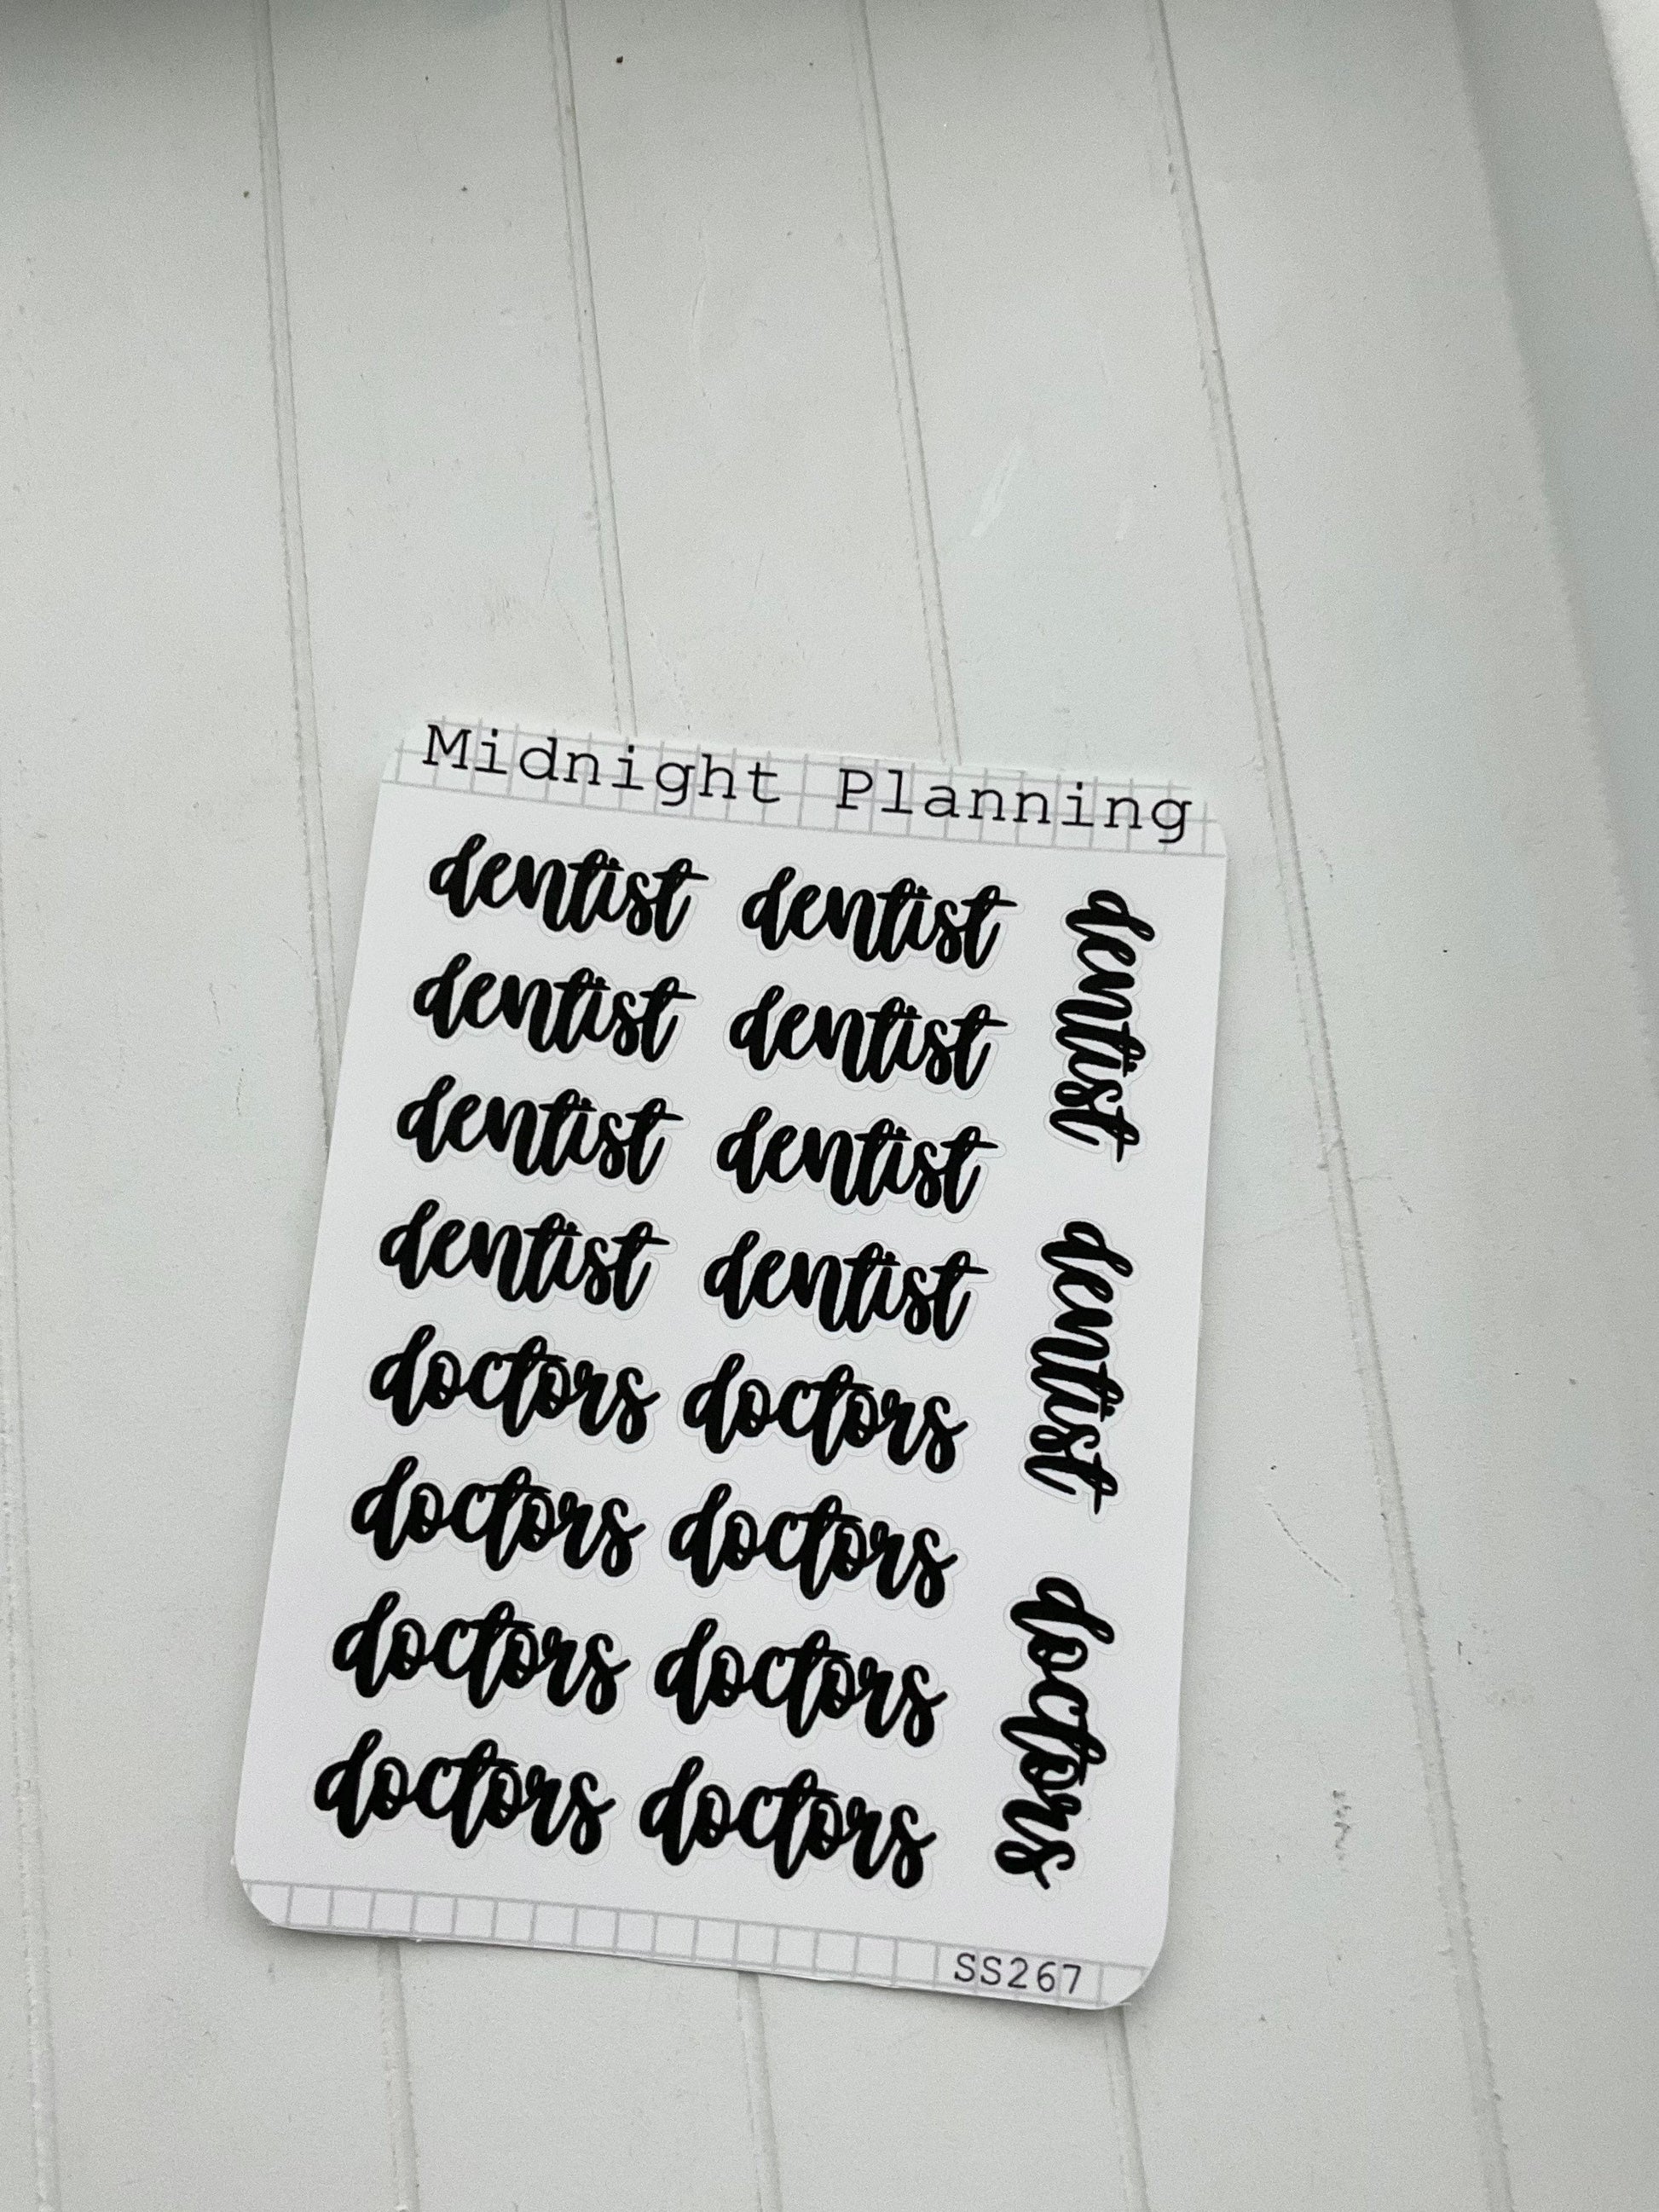 Midnight Planning
dentist dentist
dentist dentist
dentist dentist
dentist dentist
doctors doctors
doctors doctors
doctors doctors
doctors doctors
dentist
dentist
doctors
SS267